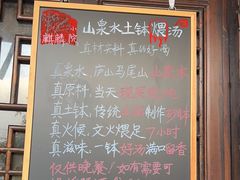 麒麟小院
山泉水土钵煨汤
真材实料 真的好喝
真泉水,庐山马尾山
真原料,当天
真土钵,传统 制作
真火候,文火煨足7小时
真滋味,一钵好汤满口留香
仅供晚餐/如有需要可